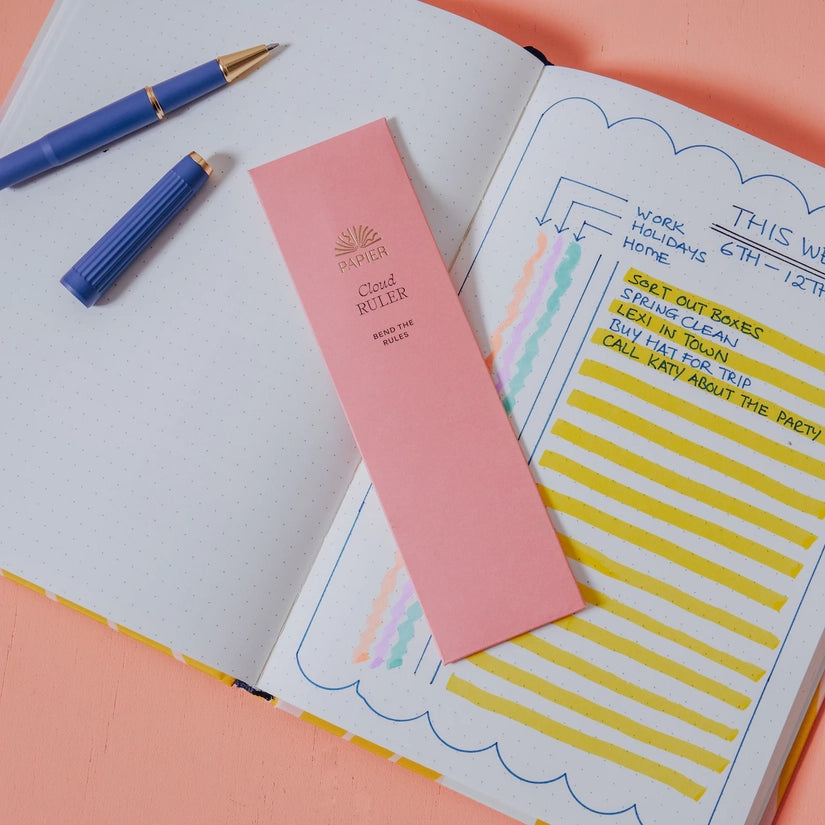 PAPIER
Cloud
RULER
BEND THE
RULES
WORK
HOLIDAYS
HOME
THIS WE
6TH – 12TH
SORT OUT BOXES
SPRING CLEAN
LEXI IN TOWN
BUY HAT FOR TRIP
CALL KATY ABOUT THE PARTY